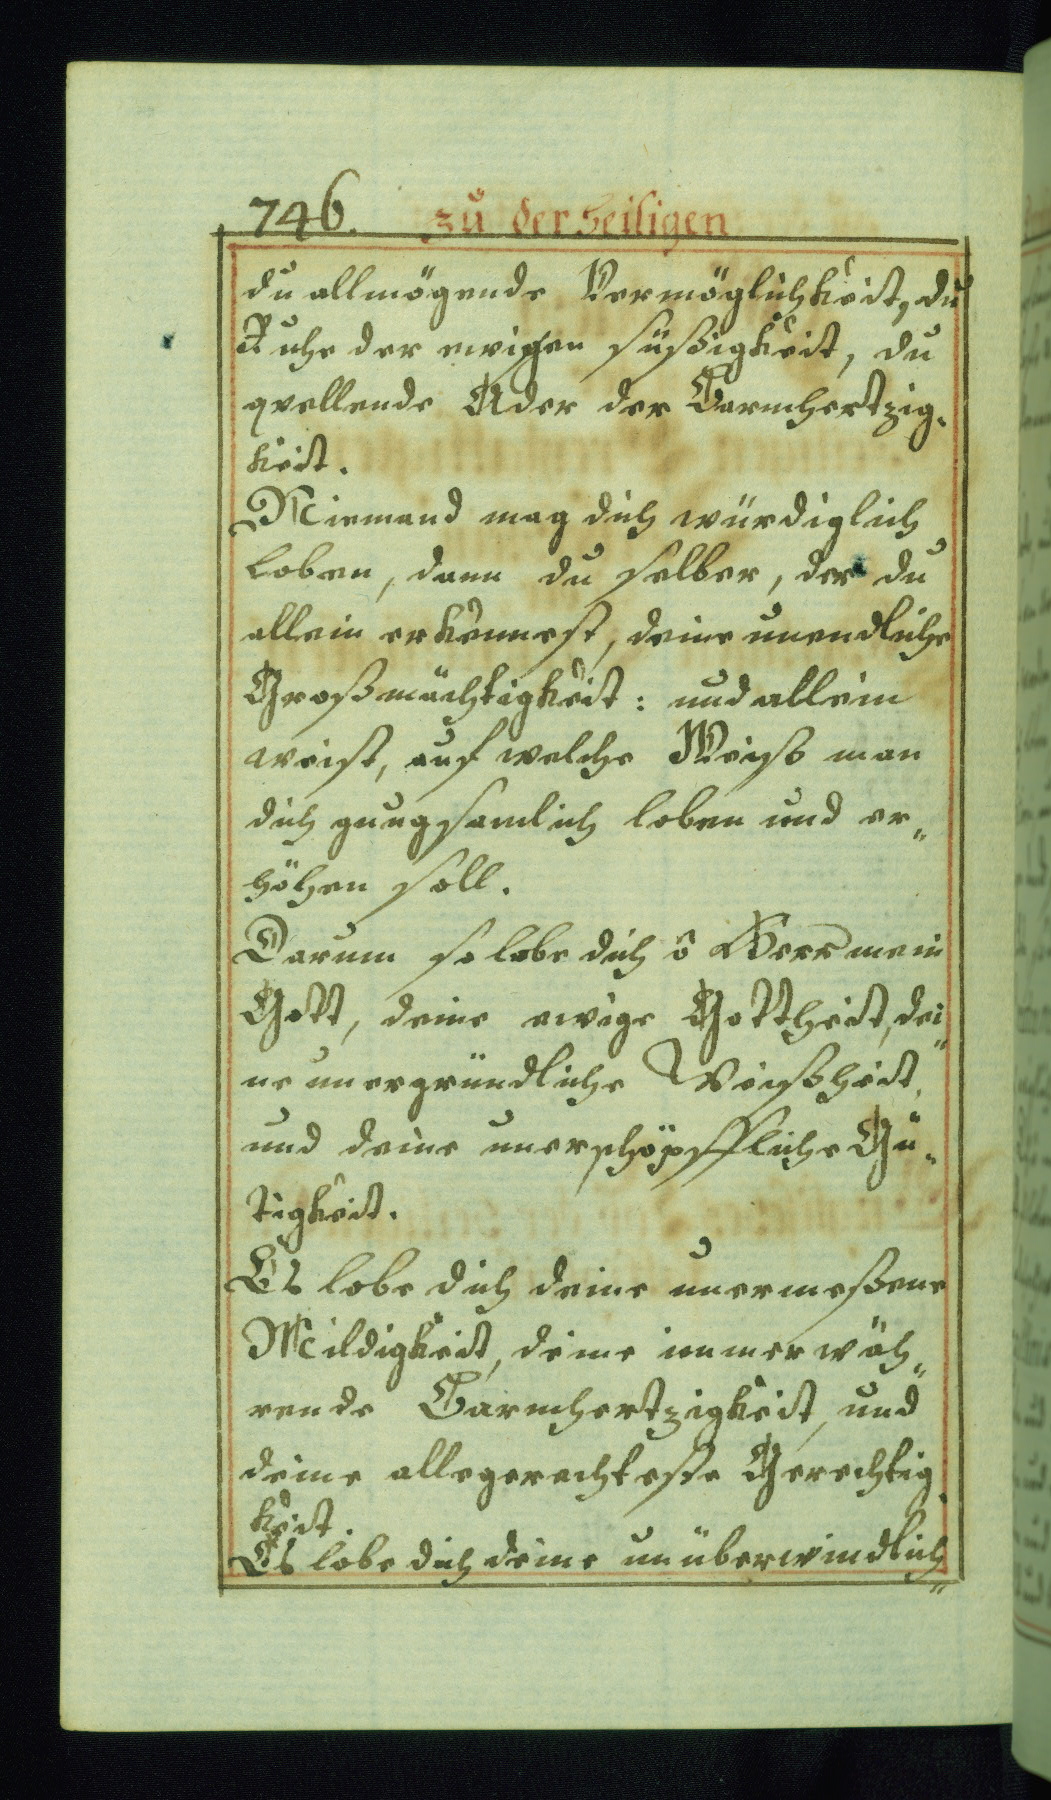 746. zu der heiligen
du allmögende Vermöglichkeit, du
Ruhe der ewigen süßigkeit, du
quellende Ader der Barmhertzig-
keit.
Niemand mag dich würdiglich
loben, dann du selber, der du
allein erkennest, deine unendliche
Großmächtigkeit: und allein
weist, auf welche Weiß man
dich gnugsamlich loben und er„
höhen soll.
Darum so lobe dich ô Herr mein
Gott, deine ewige Gottheit, dei„
ne unergründliche Weißheit,
und deine unerschöpffliche Gü-
tigkeit.
Es lobe dich deine unermeßene
Mildigkeit, deine immerwäh„
rende Barmhertzigkeit, und
deine allegerechteste Gerechtig
keit.
Es lobe dich deine unüberwindlich„